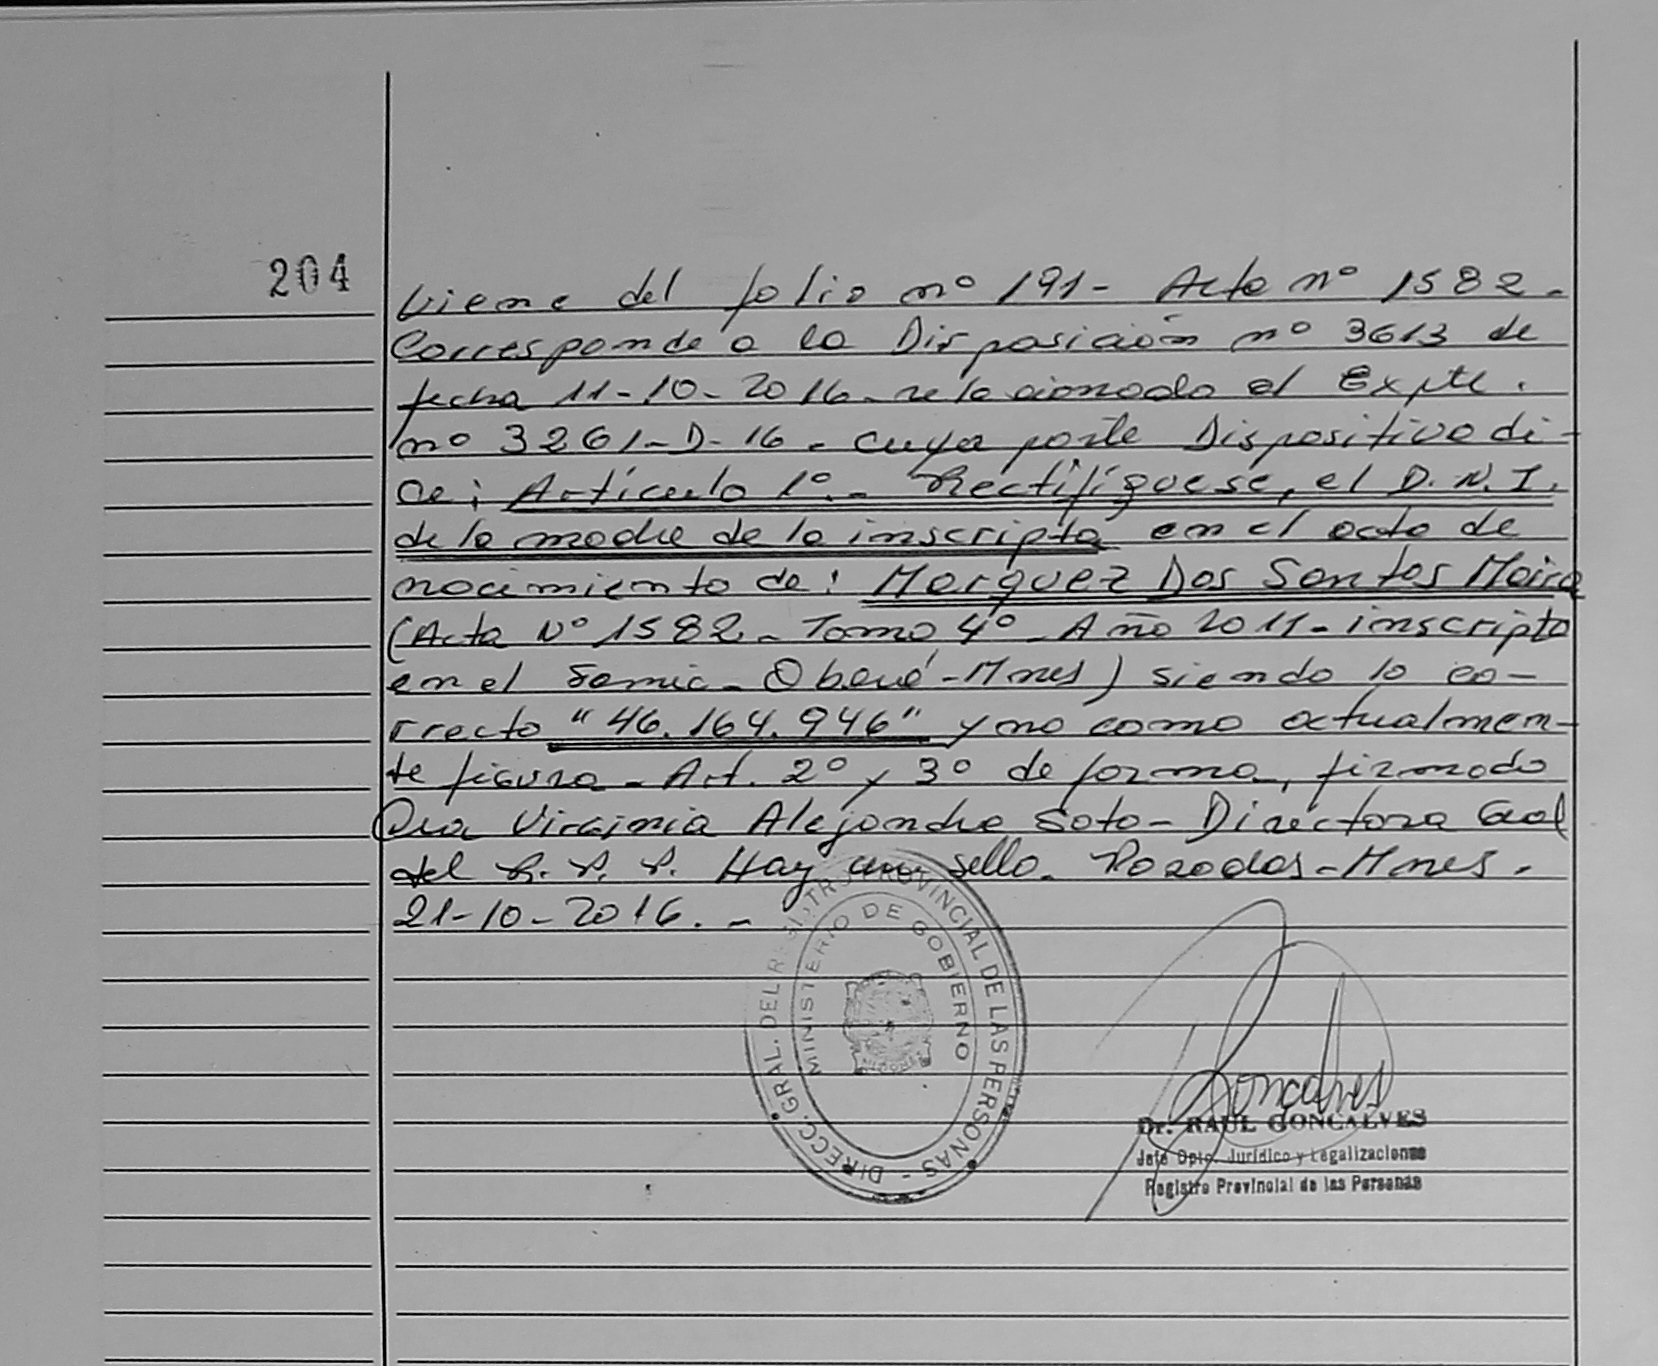 204
Viene del folio nº 191- Acta nº 1582.
Corresponde a la Disposición nº 3613 de
fecha 11-10-2016- relacionado al Expte.
nº 3261-D-16. cuya parte Dispositivo di-
ce; Artículo 1º.- Rectifíquese, el D.N.I.
de la madre de la inscripta en el acta de
nacimiento de: Marquez Dos Santos Maira
(Acta Nº 1582- Tomo 4º- Año 2011- inscripta
en el Samic- Oberá-Mnes) siendo lo co-
rrecto "46.164.946" y no como actualmen-
te figura- Art. 2º y 3º de forma, firmado
Dra Virginia Alejandra Soto- Directora Gral
del R.P.P. Hay un sello. Posadas-Mnes.
21-10-2016.-
DIRECC. GRAL. DEL REGISTRO PROVINCIAL DE LAS PERSONAS -
MINISTERIO DE GOBIERNO
Goncalves
Dr. RAUL GONCALVES
Jefe Dpto. Jurídico y Legalizaciones
Registro Provincial de las Personas